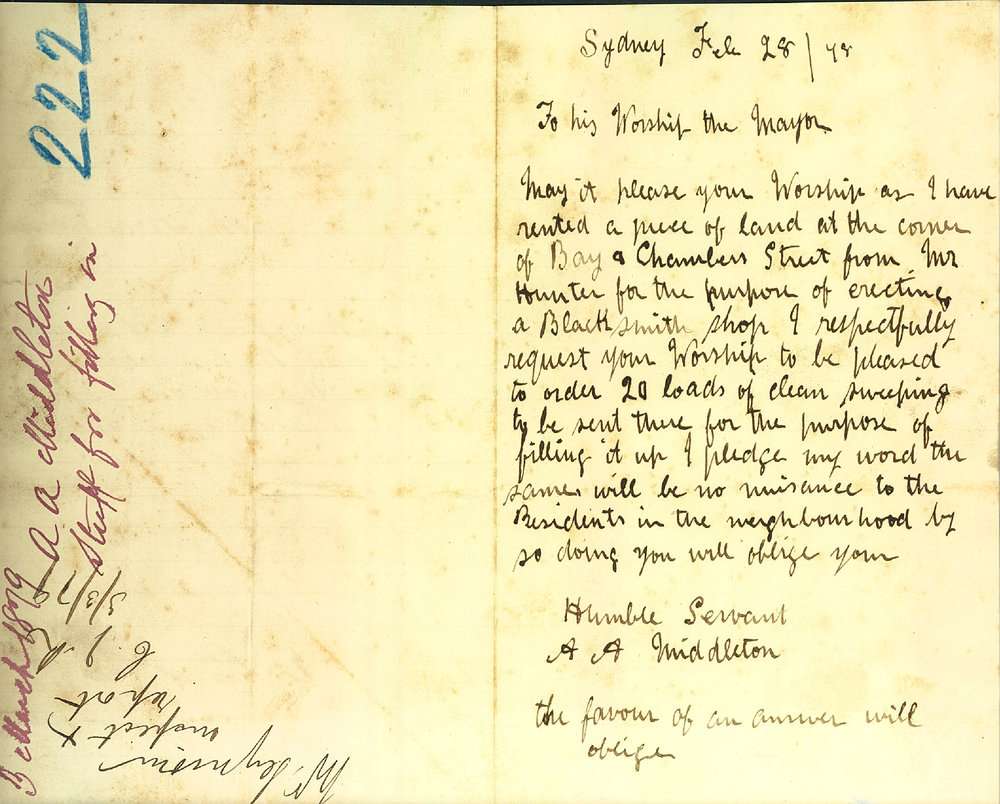 222
3 March 1879
A A Middleton
Stuff for filling in
Mr Seymour
inspect &
report
5/3/79
Sydney Feb 28/78
To his Worship the Mayor
May it please your Worship as I have
rented a piece of land at the corner
of Bay & Chambers Street from Mr
Hunter for the purpose of erecting
a Blacksmith shop I respectfully
request your Worship to be pleased
to order 20 loads of clean sweeping
to be sent there for the purpose of
filling it up I pledge my word the
same will be no nuisance to the
Residents in the neighbourhood by
so doing you will oblige your
Humble Servant
A A Middleton
the favour of an answer will
oblige